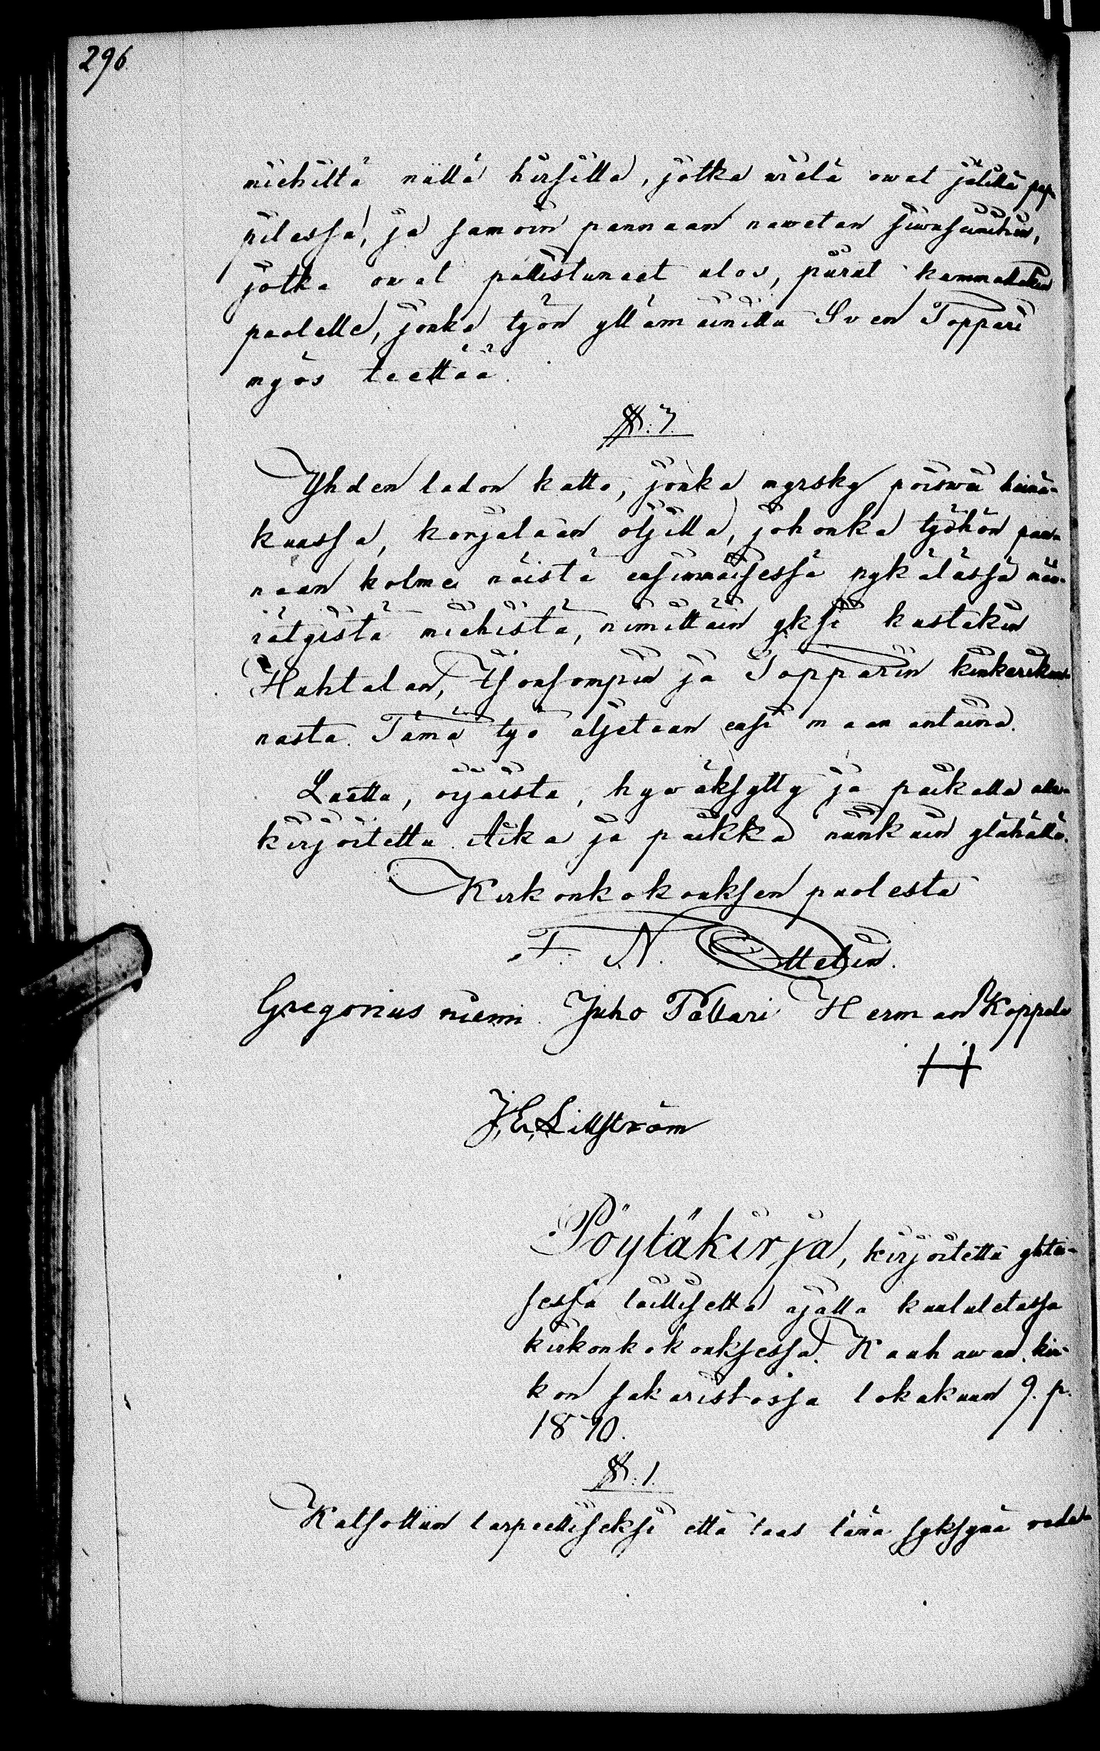 296.
miehiltä näillä hirsillä, jotka wielä owat jälillä pap-
pilassa, ja samoin pannaan nawetan siwuseinihin,
jotka owat pullistuneet ulos, piirat kummallakin
puolelle, jonka työn yllämainittu Sven Toppari
myös teettää.
§. 7.
Yhden ladon katto, jonka myrsky poiswei heinä-
kuussa, korjataan oljilla, johonka työhön pan-
naan kolme näistä ensimmäisessä pykälässä mää-
rätyistä miehistä, nimittäin yksi kustakin
Huhtalan, Isonsompin ja Topparin kinkerikun-
nasta. Tämä työ aljetaan ensi maanantaina.
Luettu, ojaista, hywäksytty ja paikalla alle-
kirjoitettu. Aika ja paikka niinkuin ylähällä.
Kirkonkokouksen puolesta
F. N. Ottelin.
Gregorius niemi Juho Pallari Herman Koppelo
J. E. Lillström
Pöytäkirja, kirjoitettu yhtei-
sessä laillisella ajalla kuulutetussa
kirkonkokouksessa Kauhawan kir-
kon sakaristossa lokakuun 9. p.
1870.
§. 1.
Katsottiin tarpeelliseksi että taas tänä syksynä